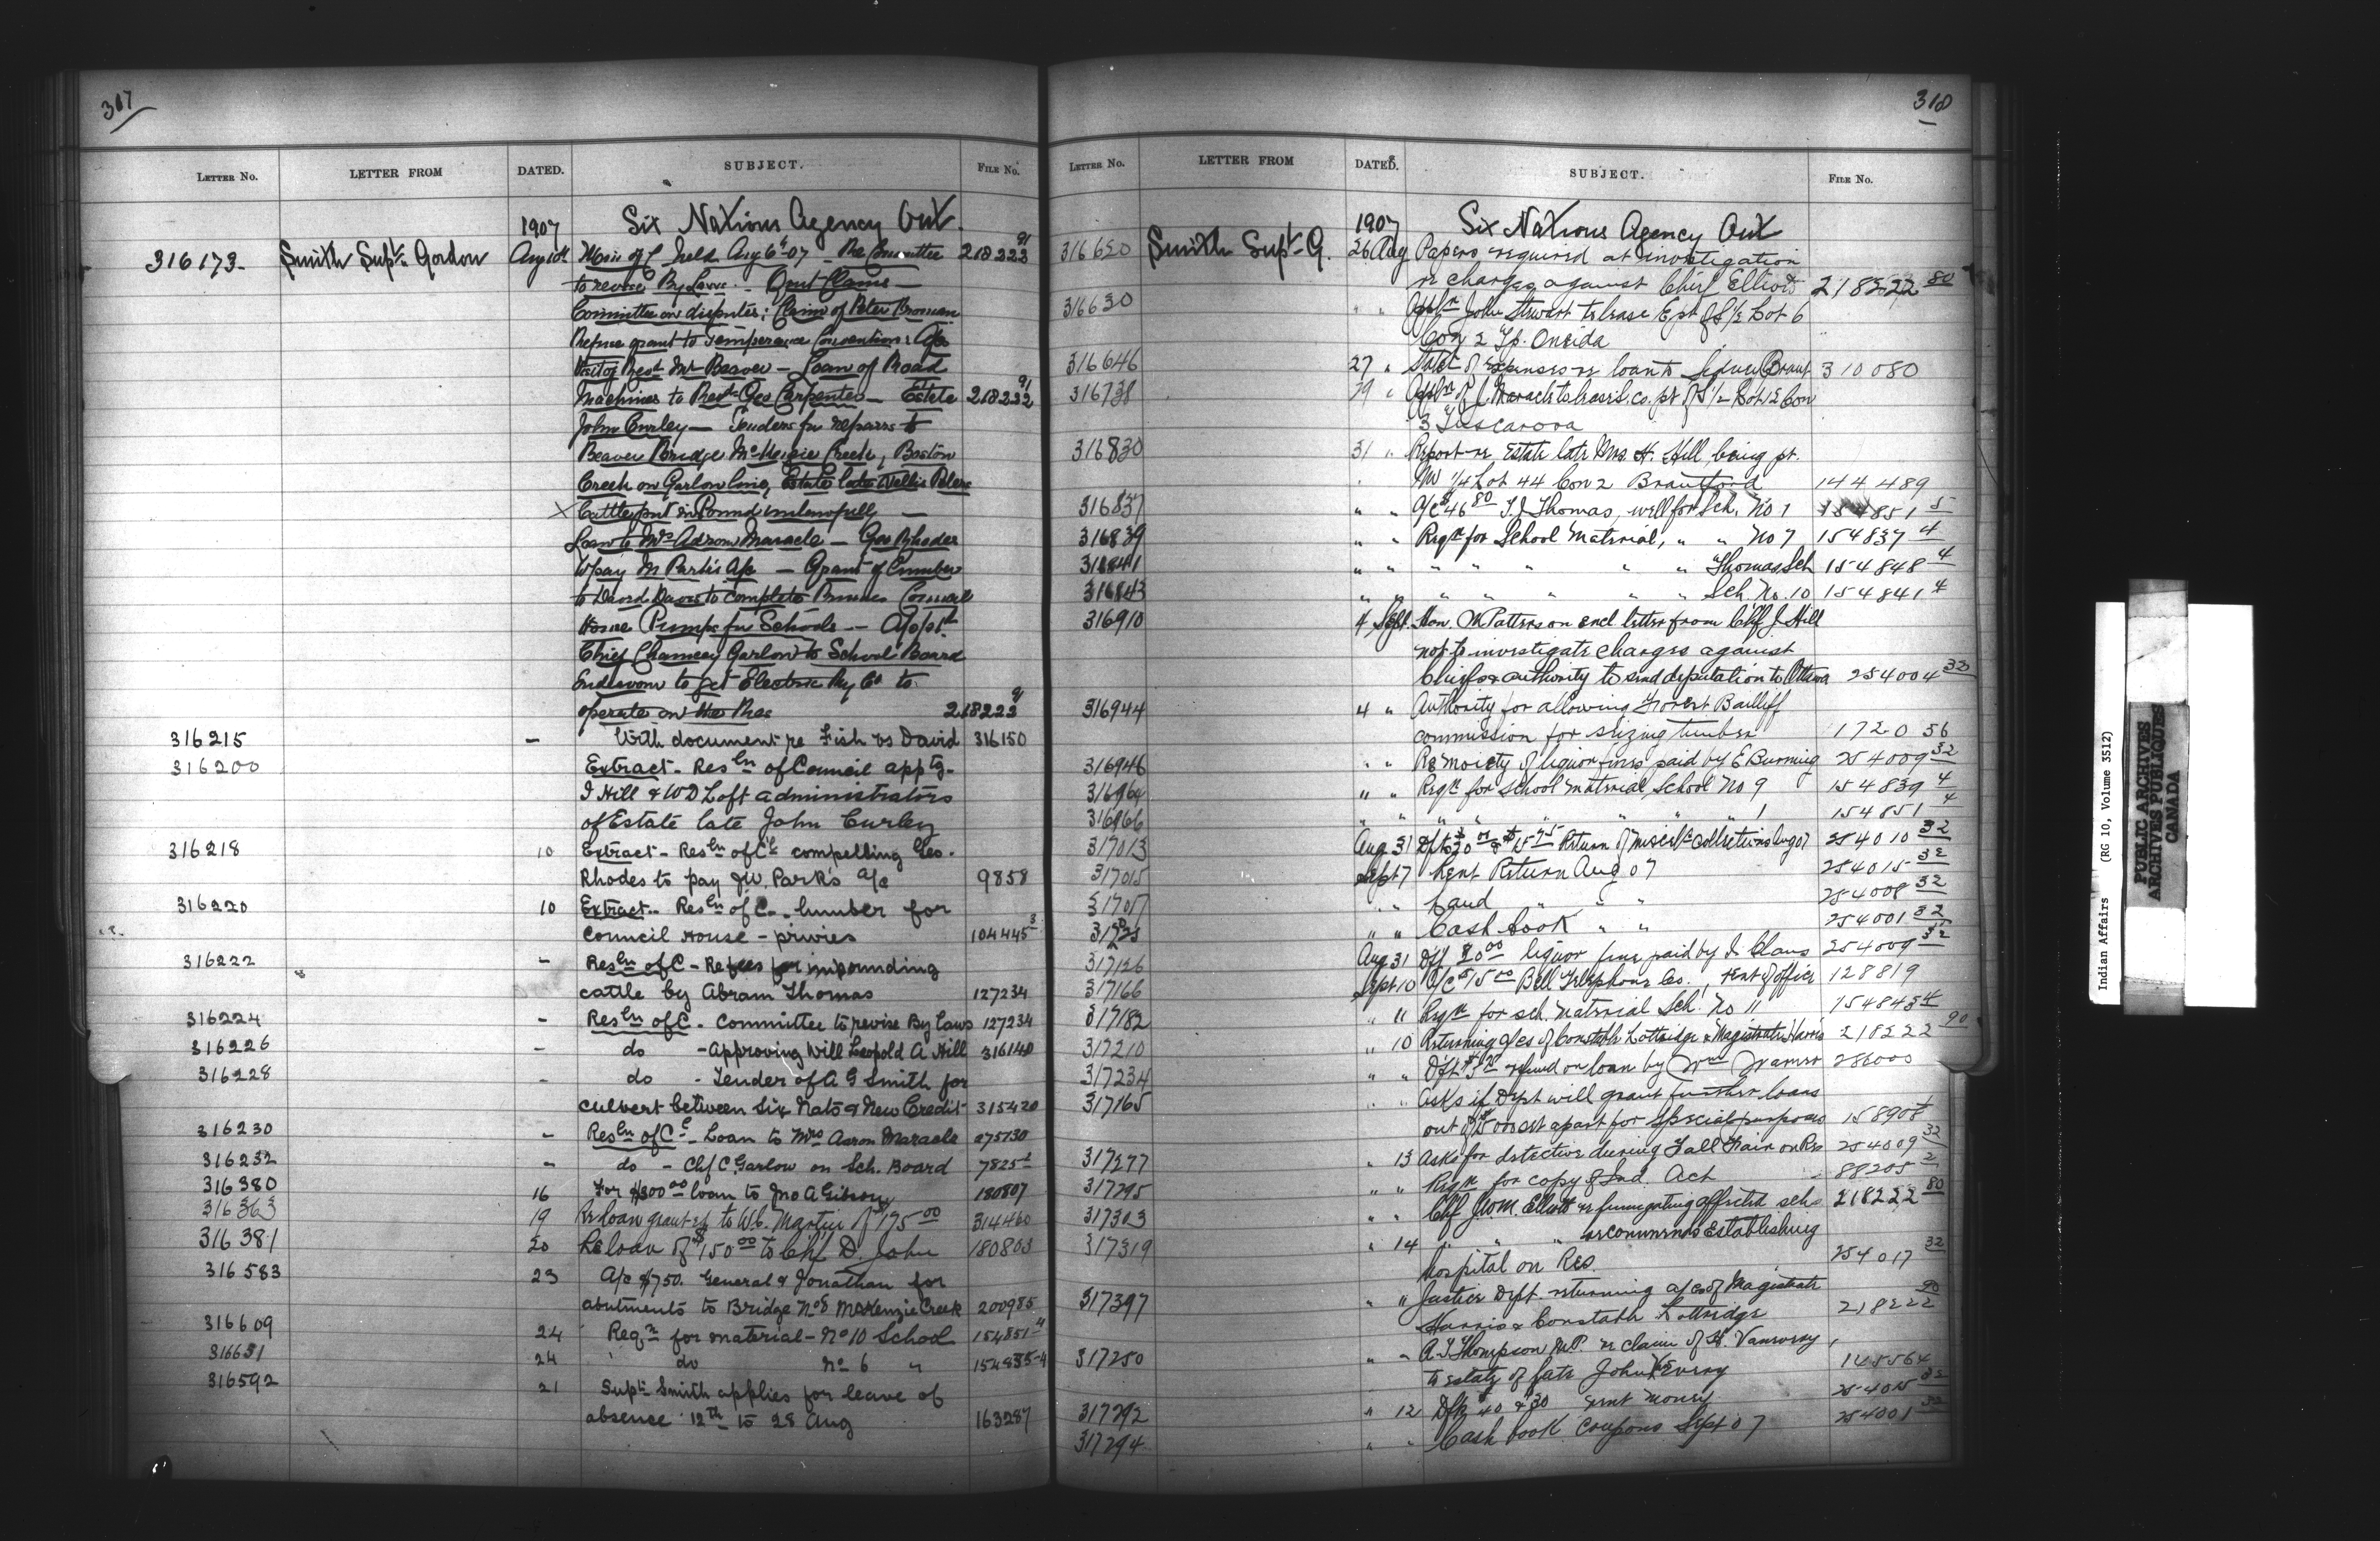 317
LETTER No. LETTER FROM DATED. SUBJECT. FILE No.
1907 Six Nations Agency Ont.
316173 Smith Supt. Gordon Aug 10th Min of C held Aug 6th 07 - Re Committee 218223 91
to revise By Laws. - Quit Claims -
Committee on disputes; Claim of Peter
Refuse grant to Temperance Convention; A/c
Mr Beaver - Loan of Road
Machines to Geo Carpenter - Estate 218232 91
John Curley - Tenders for repairs to
Beaver Bridge McKenzie Creek, Boston
Creek on Garlow line, Estate late Peters
X Cattle put in Pound unlawfully -
Loan to Mrs Maracle - Geo Rhodes
to pay Parks A/c - Grant of Lumber
to David to complete Council
House Pumps for Schools - Appt
Chief Chauncey Garlow to School Board
Endeavour to get Electric Ry Co to
operate on the Res 218223 91
316215 - With document re Fish vs David 316150
316200 Extract - Resln of Council apptg.
I Hill & W D Loft administrators
of Estate late John Curley
316218 10 Extract - Resln of C'l compelling Geo.
Rhodes to pay J.W. Park's a/c 9858
316220 10 Extract - Resln of C. - lumber for
Council House - privies 104445 3
316222 - Resln of C - Re fees for impounding
cattle by Abram Thomas 127234
316224 - Resln of C - Committee to revise By Laws 127234
316226 - do - Approving Will Leopold A Hill 316140
316228 - do - Tender of A G Smith for
culvert between Six Nats & New Credit 315420
316230 - Resln of C'l - Loan to Mrs Aaron Maracle 275130
316232 - do - Chf C. Garlow on Sch. Board 7825
316380 16 For $300 00 loan to Jno A Gibson 180807
316363 19 Re loan granted to W.C. Martin of $175 00 314460
316381 20 Re loan of $150 00 to Chf D. John 180803
316583 23 A/c $750. General & Jonathan for
abutments to Bridge No 8 McKenzie Creek 200985
316609 24 Reqn for material - No 10 School 154851 4
316631 24 do No 6 " 154835-4
316592 21 Supt Smith applies for leave of
absence 12th to 28 Aug 163287
318
LETTER No. LETTER FROM DATED. SUBJECT. FILE No.
1907 Six Nations Agency Ont
316620 Smith Supt G. 26 Aug Papers required at investigation
re charges against Chief Elliott 218222 80
316630 " " Appln John Stewart to lease E pt of S 1/2 Lot 6
Con 2 Tp. Oneida
316646 27 " Statet of expenses re loan to Sidney Brant 310080
316738 29 " Appln of J. Maracle to lease pt of S 1/2 Lot 12 Con
3 Tuscarora
316830 31 " Report re Estate late Mrs. H. Hill, being pt.
NW 1/4 Lot 44 Con 2 Brantford 144489
316837 " " A/c $46 80 T.J. Thomas, well for Sch. No 1 154851 5
316839 " " Reqn for School Material, " " No 7 154837 4
316841 " " " " " " " Thomas Sch 154848 4
316843 " " " " " " " Sch No. 10 154841 4
316910 4 Sept. Hon. Patterson encl. letter from Chf J Hill
not to investigate charges against
Chiefs & authority to send deputation to Ottawa 254004 32
316944 4 " Authority for allowing Forest Bailiff
commission for seizing timber 172056
316946 " " Re Moiety of liquor fines paid by E Burning 254009 32
316964 " " Reqn for School material, School No 9 154839 4
316966 " " " " " " " 1 154851 4
317013 Aug 31 Return of miscells collections Aug 07 254010 32
317015 Sept 7 Rent Return Aug 07 254015 32
317017 " " Land " " " 254008 32
" " Cash book " " 254001 32
317126 Aug 31 Dft 20 00 liquor fine paid by I. Claus 254009 32
317166 Sept 10 A/c $15 00 Bell Telephone Co., rent of office 128819
317182 " 11 Reqn for sch. material Sch. No 11 154843 4
317210 " 10 Returning a/cs of Constable Lottridge & Magistrate Harris 218222 90
317234 " " refund on loan by Wm 286000
317165 " " Asks if Dept will grant further loans
out of $5000 set apart for special purposes 158908
317277 " 13 Asks for detective during Fall Fair on Res 254009 32
317295 " " Reqn for copy of Ind. Act 88205 2
317303 " " Chf J.W.M. Elliott re fumigating affected schs 218222 80
317319 " 14 " " " recommends establishing
hospital on Res. 254017 32
317397 " " Justice Dept. returning a/cs of Magistrate
Harris & Constable Lottridge 218222 90
317250 " " A.T. Thompson M.P. re claim of H. Vanevery,
to estate of late John 145564
317292 " 12 Dfts 40 & $30 rent money 254015 32
317294 " " Cash book coupons Sept 07 254001 32
Indian Affairs (RG 10, Volume 3512)
PUBLIC ARCHIVES
ARCHIVES PUBLIQUES
CANADA